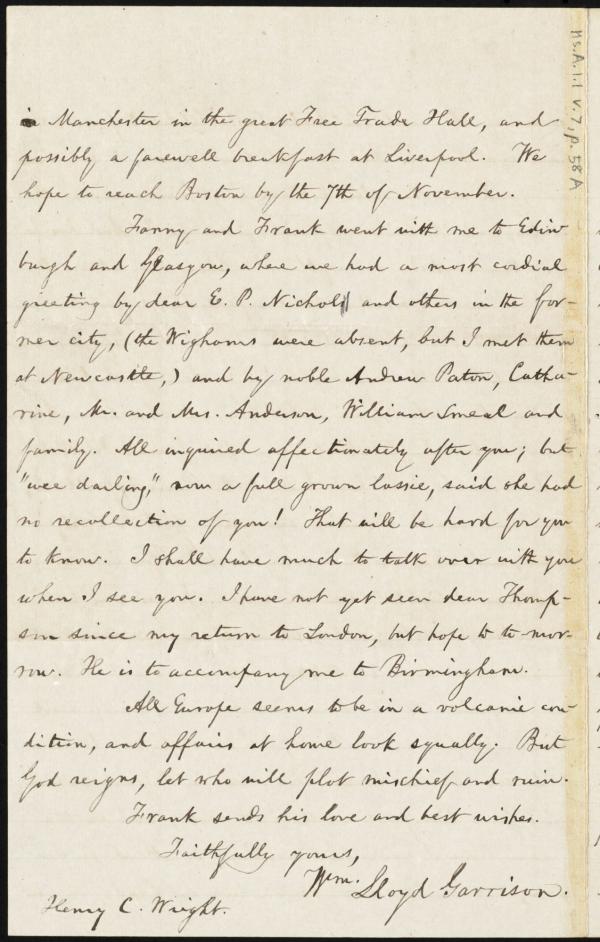 in Manchester in the great Free Trade Hall, and
possibly a farewell breakfast at Liverpool. We
hope to reach Boston by the 7th of November.
Fanny and Frank went with me to Edin-
burgh and Glasgow, where we had a most cordial
greeting by dear E. P. Nichol, and others in the for-
mer city, (the Wighams were absent, but I met them
at Newcastle,) and by noble Andrew Paton, Catha-
rine, Mr. and Mrs. Anderson, William Smeal and
family. All inquired affectionately after you; but
"wee darling," now a full grown lassie, said she had
no recollection of you! That will be hard for you
to know. I shall have much to talk over with you
when I see you. I have not yet seen dear Thomp-
son since my return to London, but hope to to-mor-
row. He is to accompany me to Birmingham.
All Europe seems to be in a volcanic con-
dition, and affairs at home look squally. But
God reigns, let who will plot mischief and ruin.
Frank sends his love and best wishes.
Faithfully yours,
Wm. Lloyd Garrison.
Henry C. Wright.
Ms.A.1.1 v.7, p.58A